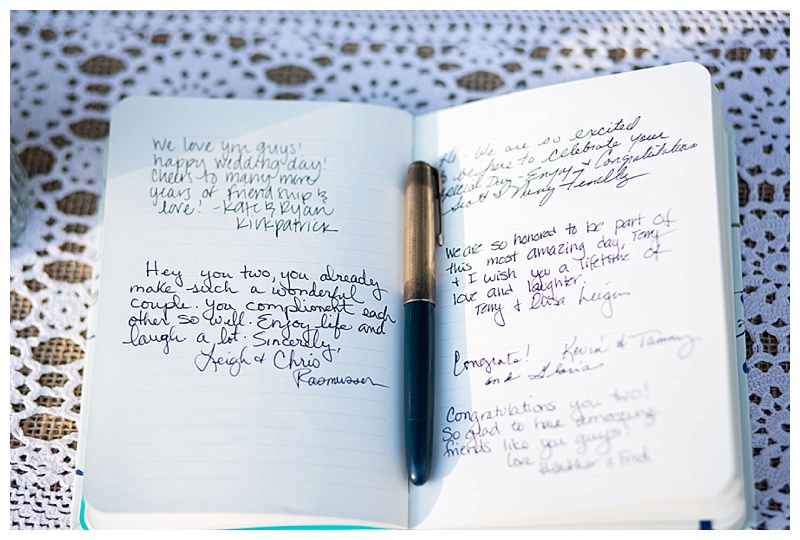 We love you guys!
happy wedding day!
Cheers to many more
years of friendship &
love! -Kate & Ryan
Kirkpatrick
Hey you two, you already
make such a wonderful
couple. You compliment each
other so well. Enjoy life and
laugh a lot. Sincerely,
Leigh & Chris
Rasmussen
We are so excited
to be here to celebrate your
special Day - Enjoy & Congratulations
Scott & Nancy
We are so honored to be part of
this most amazing day. Terry
& I wish you a lifetime of
love and laughter.
Terry & Lisa
Congrats! Kevin & Tammy
and Gloria
Congratulations you two!
So glad to have amazing
friends like you guys!
Love
Heather & Fred